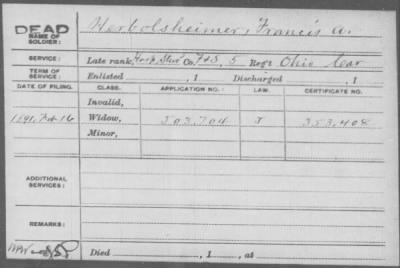 DEAD
NAME OF
SOLDIER:
Herbolsheimer, Francis A.
SERVICE:
Late rank, Hosp. Stew Co. F&S, 5 Reg't Ohio Cav
TERM OF
SERVICE:
Enlisted , 1 Discharged , 1
DATE OF FILING. CLASS. APPLICATION NO.: LAW. CERTIFICATE NO.:
Invalid,
1891, Feb 16 Widow, 503,704 353,408
Minor,
ADDITIONAL
SERVICES:
REMARKS:
Died , 1 , at